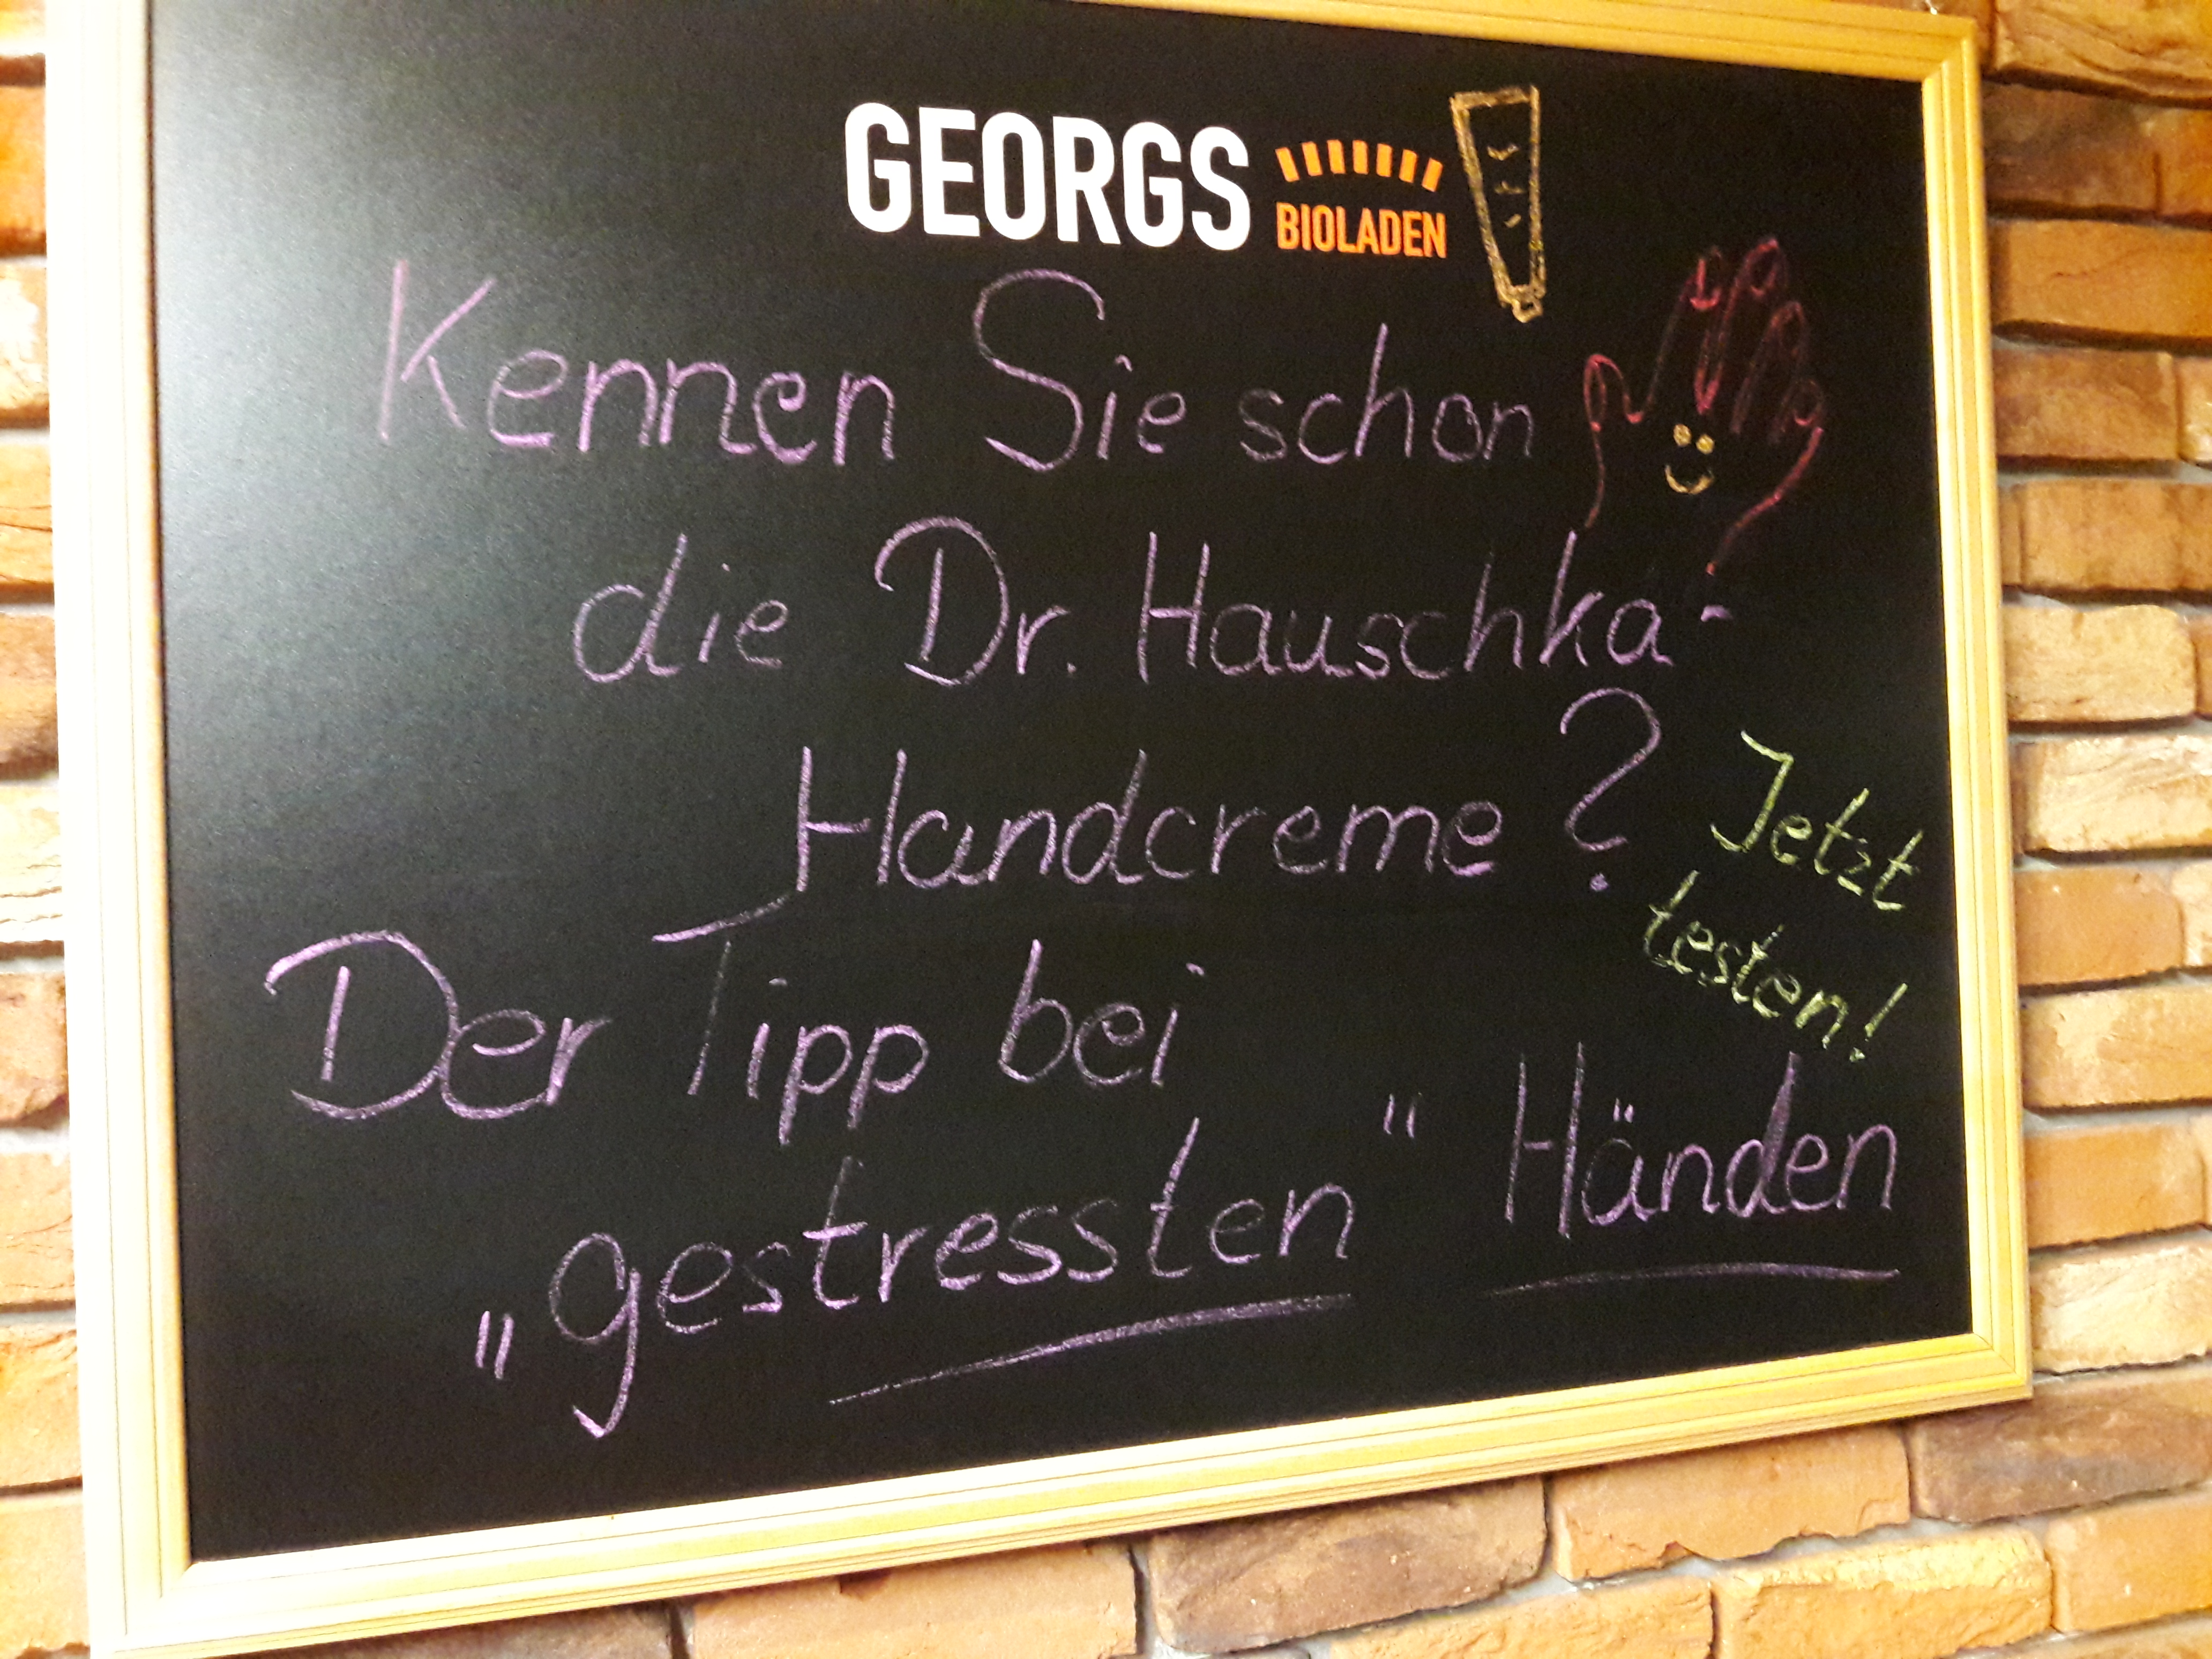 GEORGS
BIOLADEN
Kennen Sie schon
die Dr. Hauschka-
Handcreme?
Jetzt
testen!
Der Tipp bei
"gestressten" Händen